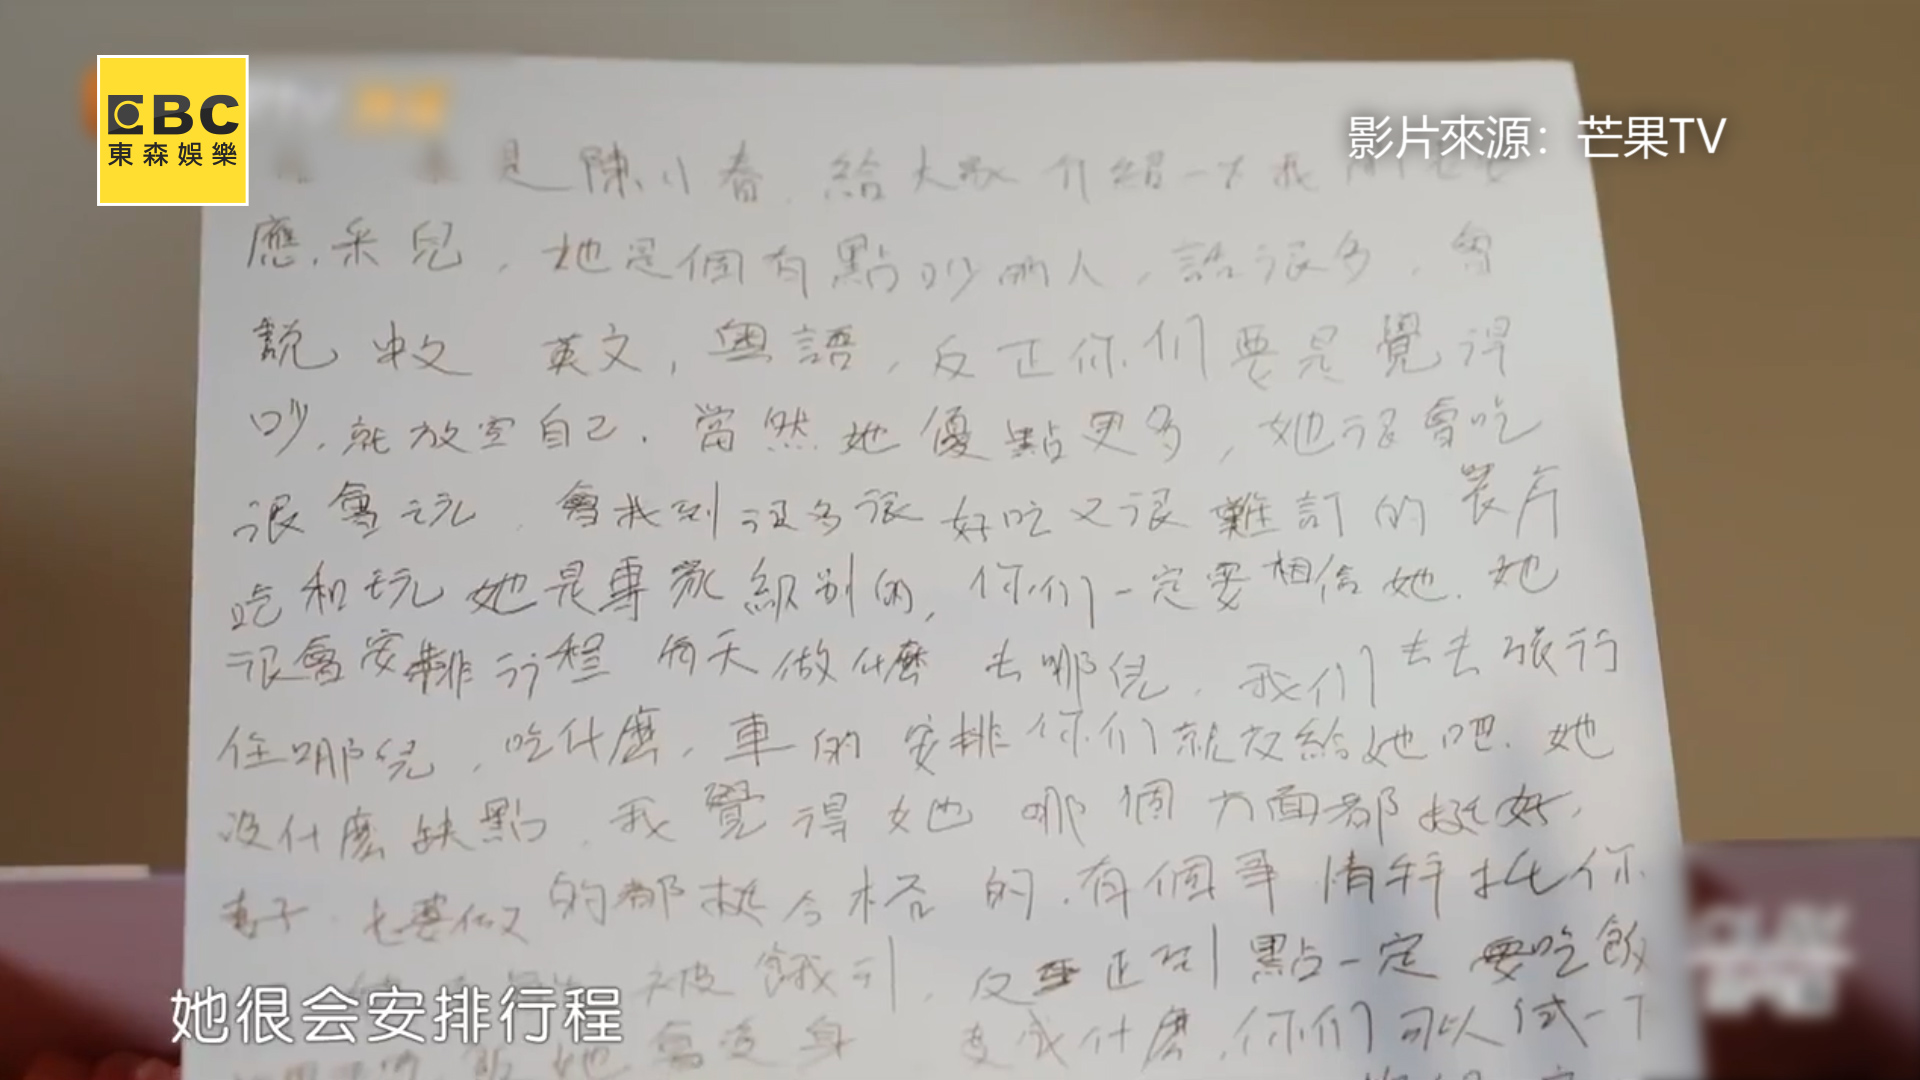 EBC
東森娛樂
影片來源：芒果TV
是陳小春,給大家介紹一下我
應采兒,她是個有點吵的人,話很多,會
說中文 英文,粵語,反正你们要是覺得
吵,就放空自己.當然她優點更多,她很會吃
很會玩,會找到很多很好吃又很難訂的餐厅
吃和玩她是專家級別的,你们一定要相信她.她
很會安排行程 每天做什麼 去哪兒,我们去去旅行
住哪兒,吃什麼,車的安排你们就交給她吧.她
没什麼缺點,我覺得她哪個方面都挺好,
妻子 的都挺合格的.有個事情拜托你
被餓到,反正到點一定要吃飯
她會變身 變成什麼,你们可以试一下
她很会安排行程